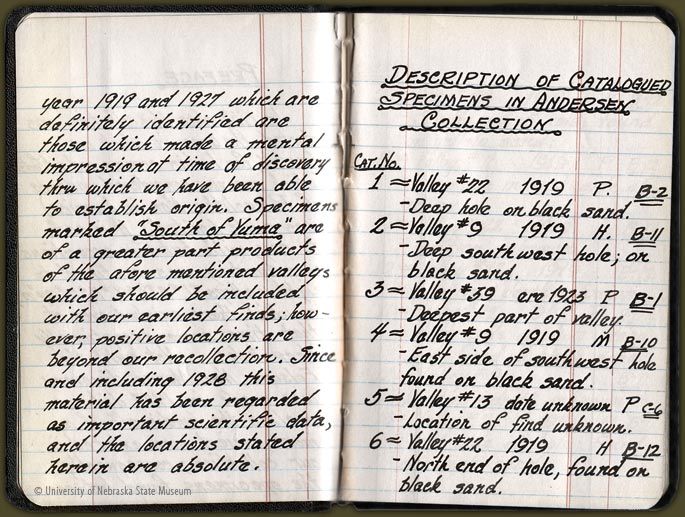 year 1919 and 1927 which are
definitely identified are
those which made a mental
impression at time of discovery
thru which we have been able
to establish origin. Specimens
marked "South of Yuma" are
of a greater part products
of the afore mentioned valleys
which should be included
with our earliest finds; how-
ever, positive locations are
beyond our recollection. Since
and including 1928 this
material has been regarded
as important scientific data,
and the locations stated
herein are absolute.
© University of Nebraska State Museum
DESCRIPTION OF CATALOGUED
SPECIMENS IN ANDERSEN
COLLECTION
CAT. NO.
1 = Valley #22 1919 P. B-2
- Deep hole on black sand.
2 = Valley #9 1919 H. B-11
- Deep southwest hole; on
black sand.
3 = Valley #39 ere 1923 P B-1
- Deepest part of valley.
4 = Valley #9 1919 M B-10
- East side of southwest hole
found on black sand.
5 = Valley #13 date unknown P C-6
- Location of find unknown.
6 = Valley #22 1919 H B-12
- North end of hole, found on
black sand.